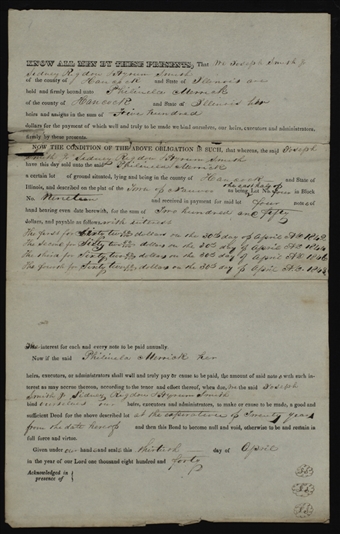 KNOW ALL MEN BY THESE PRESENTS, That We Joseph Smith Jr
Sidney Rigdon & Hyrum Smith
of the county of Hancock and State of Illinois are
held and firmly bound unto Philinda Merrick
of the county of Hancock and State of Illinois her
heirs and assigns in the sum of Five hundred
dollars for the payment of which well and truly to be made we bind ourselves, our heirs, executors and administrators,
firmly by these presents.
NOW THE CONDITION OF THE ABOVE OBLIGATION IS SUCH, that whereas, the said Joseph
Smith Jr Sidney Rigdon & Hyrum Smith
have this day sold unto the said Philinda Merrick
a certain lot of ground situated, lying and being in the county of Hancock and State of
Illinois, and described on the plat of the Town of Nauvoo
the east half of
being Lot No. four in Block
No. Nineteen and received in payment for said lot four notes of
hand bearing even date herewith, for the sum of Two hundred and fifty
dollars, and payable as follows:
The first for Sixty two dollars on the 30th day of April AD
The second for Sixty two dollars on the 30th day of April AD
The third for Sixty two dollars on the 30th day of April AD
The fourth for Sixty two dollars on the 30th day of April AD
The interest for each and every note to be paid annually.
Now if the said Philinda Merrick her
heirs, executors, or administrators shall well and truly pay or cause to be paid, the amount of said notes with such in-
terest as may accrue thereon, according to the tenor and effect thereof, when due, the said Joseph
Smith Jr Sidney Rigdon & Hyrum Smith
bind ourselves our heirs, executors, and administrators, to make or cause to be made, a good and
sufficient Deed for the above described lot at the expiration of Twenty years
from the date hereof and then this Bond to become null and void, otherwise to be and remain in
full force and virtue.
Given under our hands and seals this thirtieth day of April
in the year of our Lord one thousand eight hundred and forty
Acknowledged in
presence of